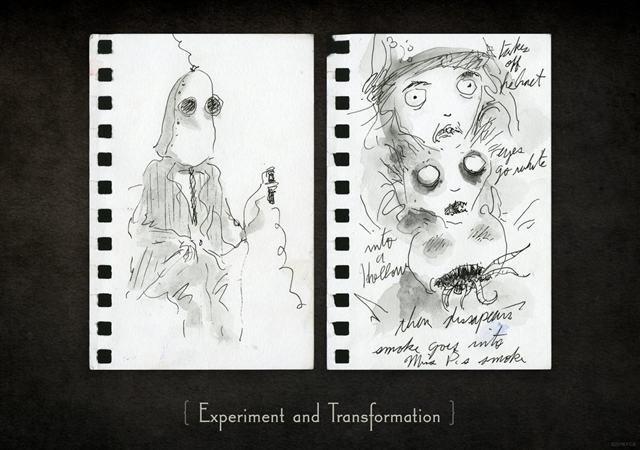 takes
off
helmet
eyes
go white
into
a
hollow
then dissapears
smoke goes into
Miss P.s smoke
{ Experiment and Transformation }